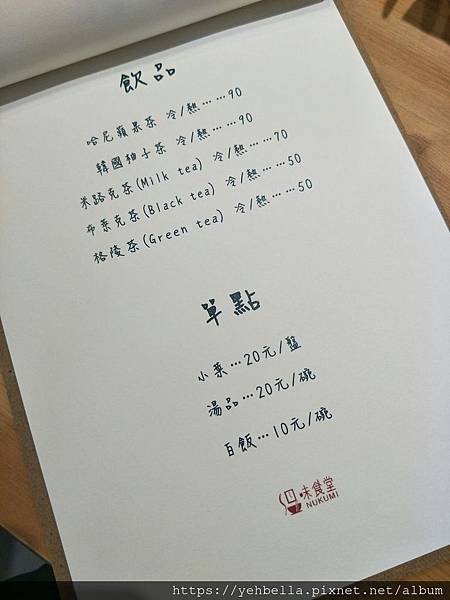 飲品
哈尼蘋果茶 冷/熱……90
韓國柚子茶 冷/熱……90
米路克茶(Milk tea) 冷/熱……70
布萊克茶(Black tea) 冷/熱……50
格陵茶(Green tea) 冷/熱……50
單點
小菜…20元/盤
湯品…20元/碗
白飯…10元/碗
味食堂
NUKUMI
https://yehbella.pixnet.net/album